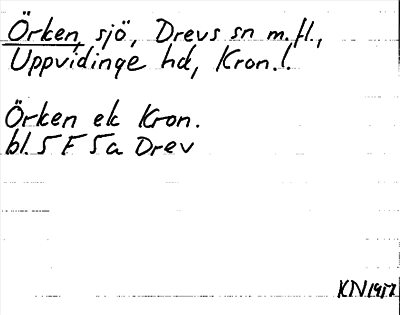 Örken, sjö, Drevs sn m.fl.,
Uppvidinge hd, Kron.l.
Örken ek Kron.
bl. 5 F 5a Drev